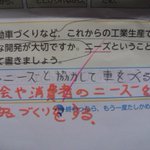 動車づくりなど、これからの工業生産で
な開発が大切ですか。ニーズということ
て書きましょう。
ニーズと協力して車をづくる
会や消費者のニーズを
づくりをする。
もう一度たしかめ